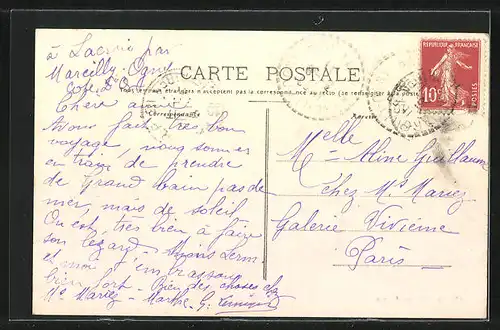 à Lacour par
Marcilly-Ogny
Côte d'Or
CARTE POSTALE
Tous les pays étrangers n'acceptent pas la correspondance au recto (Se renseigner à la poste)
Correspondance
Adresse
RÉPUBLIQUE FRANÇAISE
10c
POSTES
Chers amis
Avons fait très bon
voyage, nous sommes
en train de prendre
de grand bain pas de
mer, mais de soleil
On est très bien à faire
son lézard
et moi j'embrassons
bien fort - Bien des choses chez
Me Mariez - Marthe G.
Melle Aline Guillaume
chez Me Mariez
Galerie Vivienne
Paris